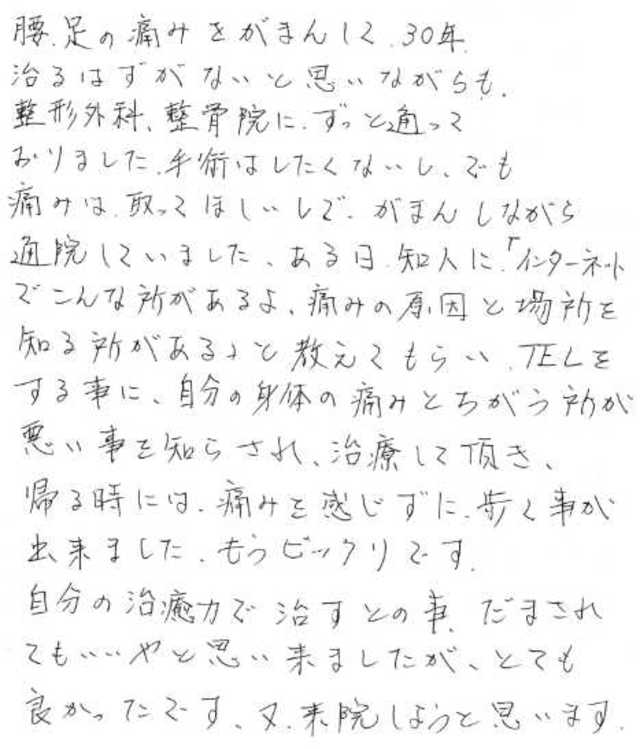 腰、足の痛みをがまんして、30年、
治るはずがないと思いながらも、
整形外科、整骨院に、ずっと通って
おりました。手術はしたくないし、でも
痛みは、取ってほしいしで、がまんしながら
通院していました、ある日、知人に、「インターネット
でこんな所があるよ、痛みの原因と場所を
知る所があるよと教えてもらい、TELを
する事に、自分の身体の痛みとちがう所が
悪い事を知らされ、治療して頂き、
帰る時には、痛みを感じずに、歩く事が
出来ました。もうビックリです。
自分の治癒力で治すとの事、だまされ
てもいいやと思い来ましたが、とても
良かったです、又、来院しようと思います。